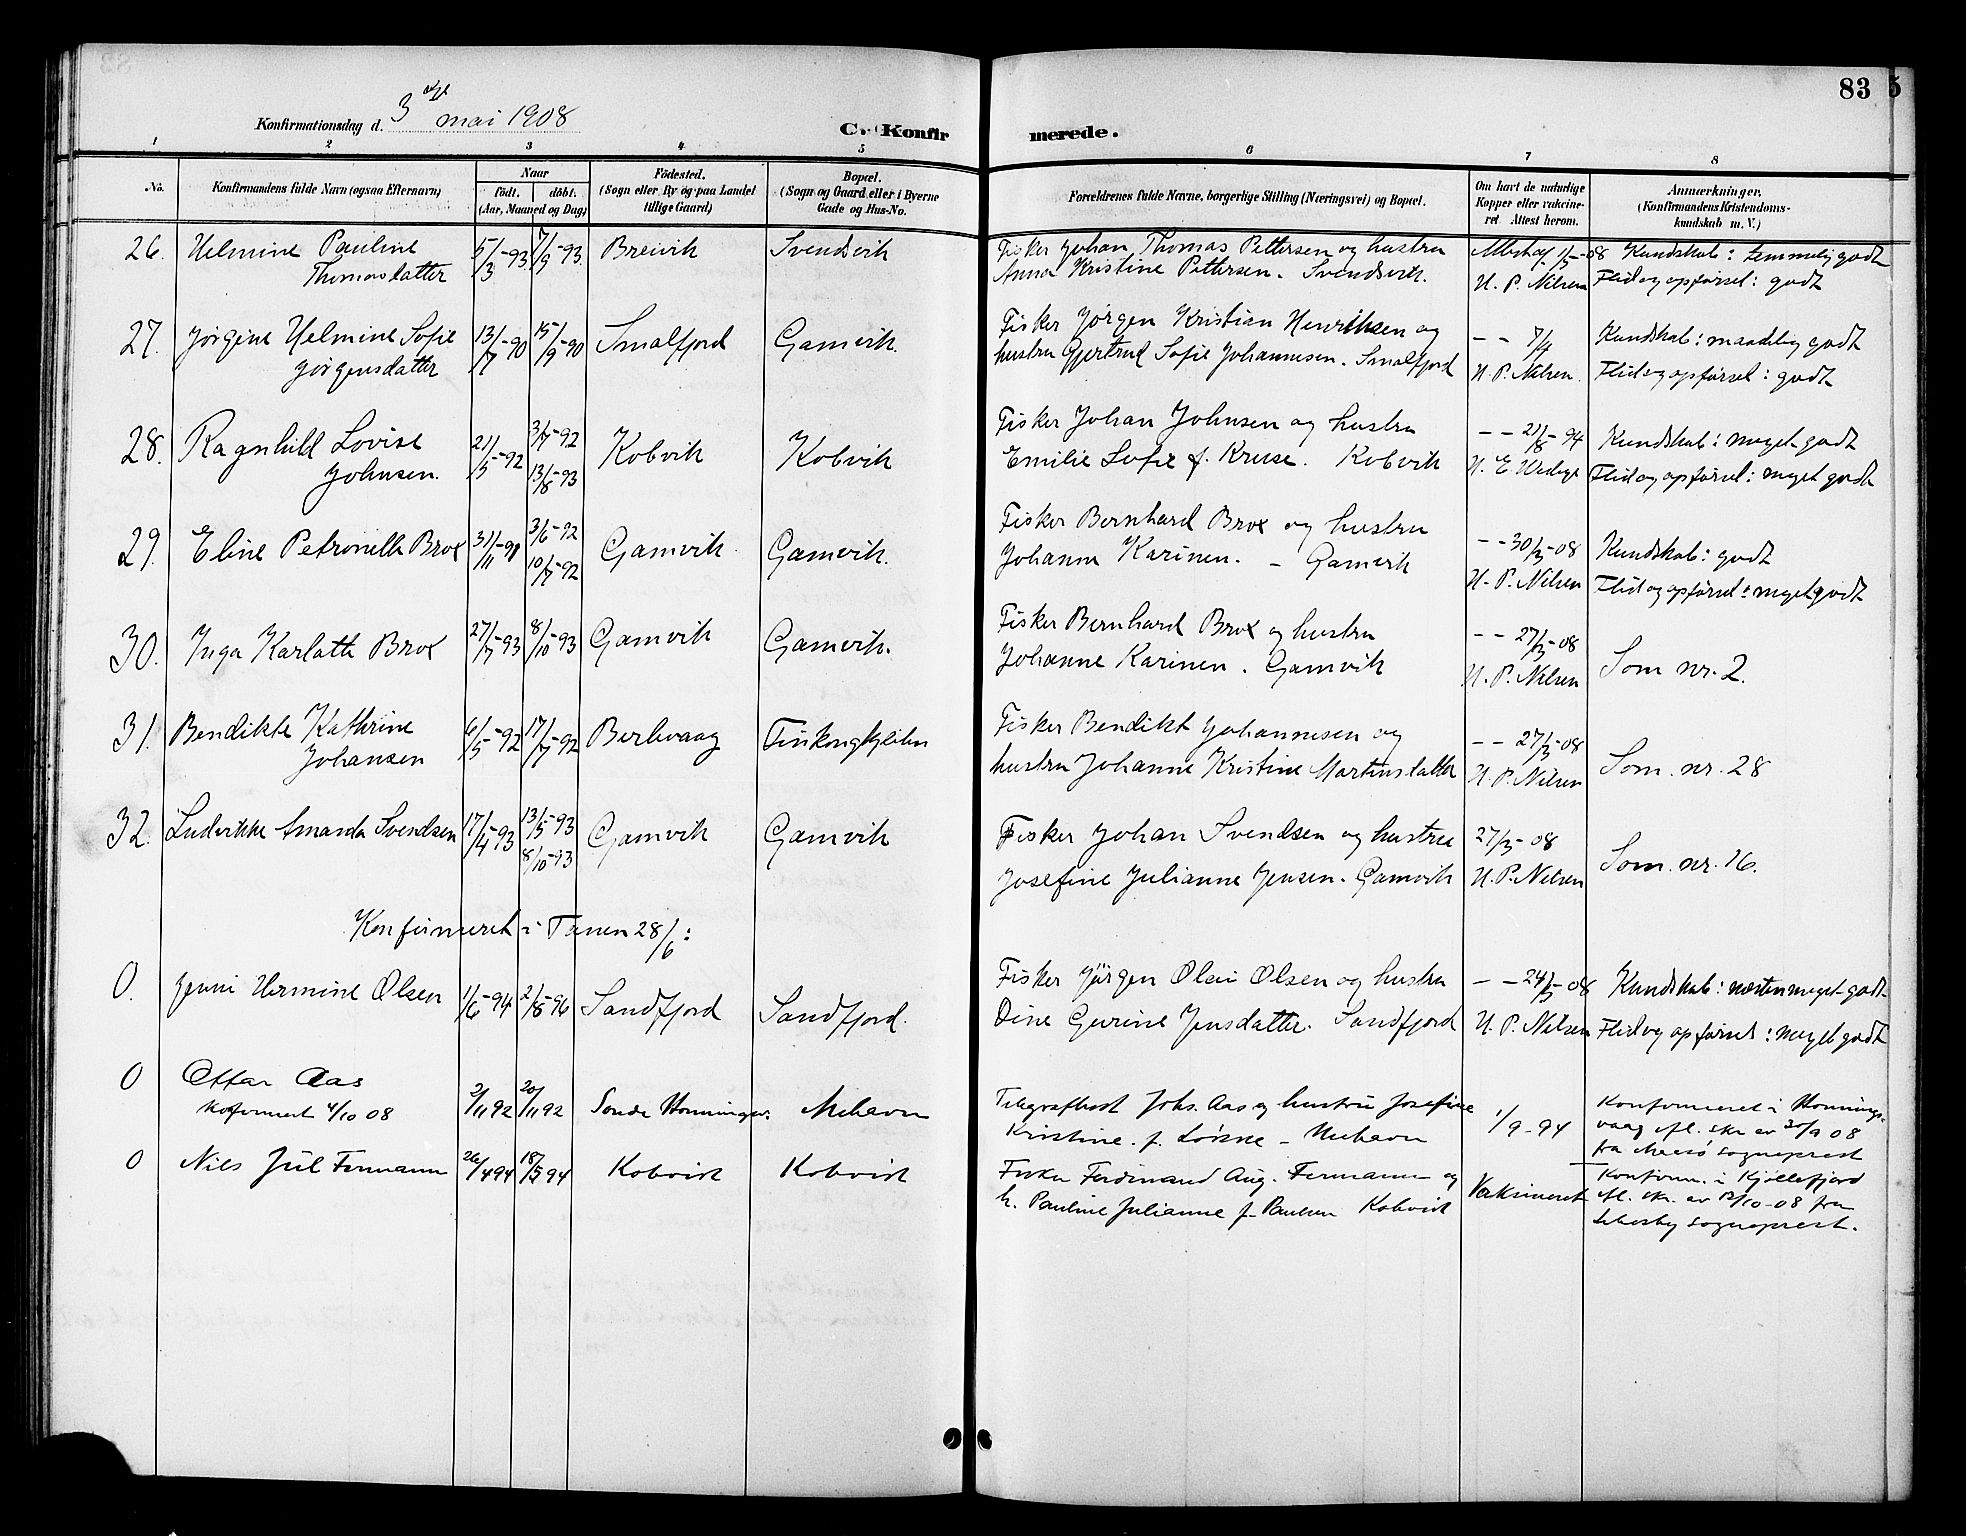 83
Konfirmationsdag d. 3 mai 1908
C. Konfirmerede.
1 2 3 4 5 6 7 8
No. Konfirmandens fulde Navn (ogsaa Efternavn) Naar födt. döbt. (Aar, Maaned og Dag) Födested. (Sogn eller By og paa Landet tillige Gaard) Bopæl. (Sogn og Gaard eller i Byerne Gade og Hus-No. Forældrenes fulde Navne, borgerlige Stilling (Næringsvei) og Bopæl. Om havt de naturlige Kopper eller vakcineret Attest herom. Anmærkninger. (Konfirmandens Kristendomskundskab m. V.)
26. Helmine Pauline 5/3-93 7/9-93. Breivik Svendsvik Fisker Johan Thomas Pettersen og hustru Attest af Kundskab: temmelig godt
Thomasdatter Anna Kristine Pettersen. Svendsvik. H. P. Nilsen Flid og opførsel: godt
27. Jørgine Helmine Sofie 13/7-90 15/9-90 Smalfjord Gamvik. Fisker Jørgen Kristian Henriksen og - - 7/4 Kundskab: maadelig godt
Jørgensdatter hustru Gjertrud Sofie Johannesen. Smalfjord H. P. Nilsen. Flid og opførsel: godt
28. Ragnhild Lovise 21/5-92 3/7-92 Kobvik Kobvik Fisker Johan Johnsen og hustru - - 21/8-94 Kundskab: meget godt
Johnsen. 13/8-93 Emilie Sofie f. Kruse. Kobvik Flid og opførsel: meget godt
29. Eline Petronelle Brox 31/11-91 3/6-92 Gamvik Gamvik. Fisker Bernhard Brox og hustru - - 30/3-08 Kundskab: godt
10/7-92 Johanne Karinen. - Gamvik H. P. Nilsen Flid og opførsel: meget godt
30. Inga Karlotte Brox 27/7-93 8/10-93 Gamvik Gamvik. Fisker Bernhard Brox og hustru - - 27/3-08
Johanne Karinen. Gamvik H. P. Nilsen Som nr. 2.
31. Bendikte Kathrine 6/5-92 17/7-92 Berlevaag Finkongkjeilen Fisker Bendikt Johannesen og - - 27/3-08
Johansen hustru Johanne Kristine Martinsdatter H. P. Nilsen Som. nr. 28
32. Ludvikke Amanda Svendsen 17/4-93 13/5-93 Gamvik Gamvik Fisker Johan Svendsen og hustru 27/3-08
8/10-93 Josefine Julianne Jensen. Gamvik H. P. Nilsen Som. nr. 16.
Konfirmeret i Tanen 28/6:
0. Jenni Hermine Olsen 1/6-94 2/8-96 Sandfjord Sandfjord. Fisker Jörgen Olai Olsen og hustru - - 24/3-08 Kundskab: næsten meget godt
Dine Gurine Jensdatter. Sandfjord H. P. Nilsen Flid og opførsel: meget godt
0 Ottar Aas 2/11 92 20/11 92 Söndre Honningsv. Mehavn Telegrafbest Johs. Aas og hustru Josefine 1/9-94 Konfirmeret i Honnings-
Konfirmert 4/10 08 Kristine. f. - Mehavn vaag ifl. skr av 30/9 08
fra sogneprest
0 Nils Jul Fermann 26/4 94 18/5 94 Kobvik Kobvik Fisker Ferdinand Aug. Fermann og Vaksineret Konfirm. i Kjöllefjord
h. Pauline Julianne f. Paulsen Kobvik ifl. skr. av 12/10-08 fra
Lebesby sogneprest.